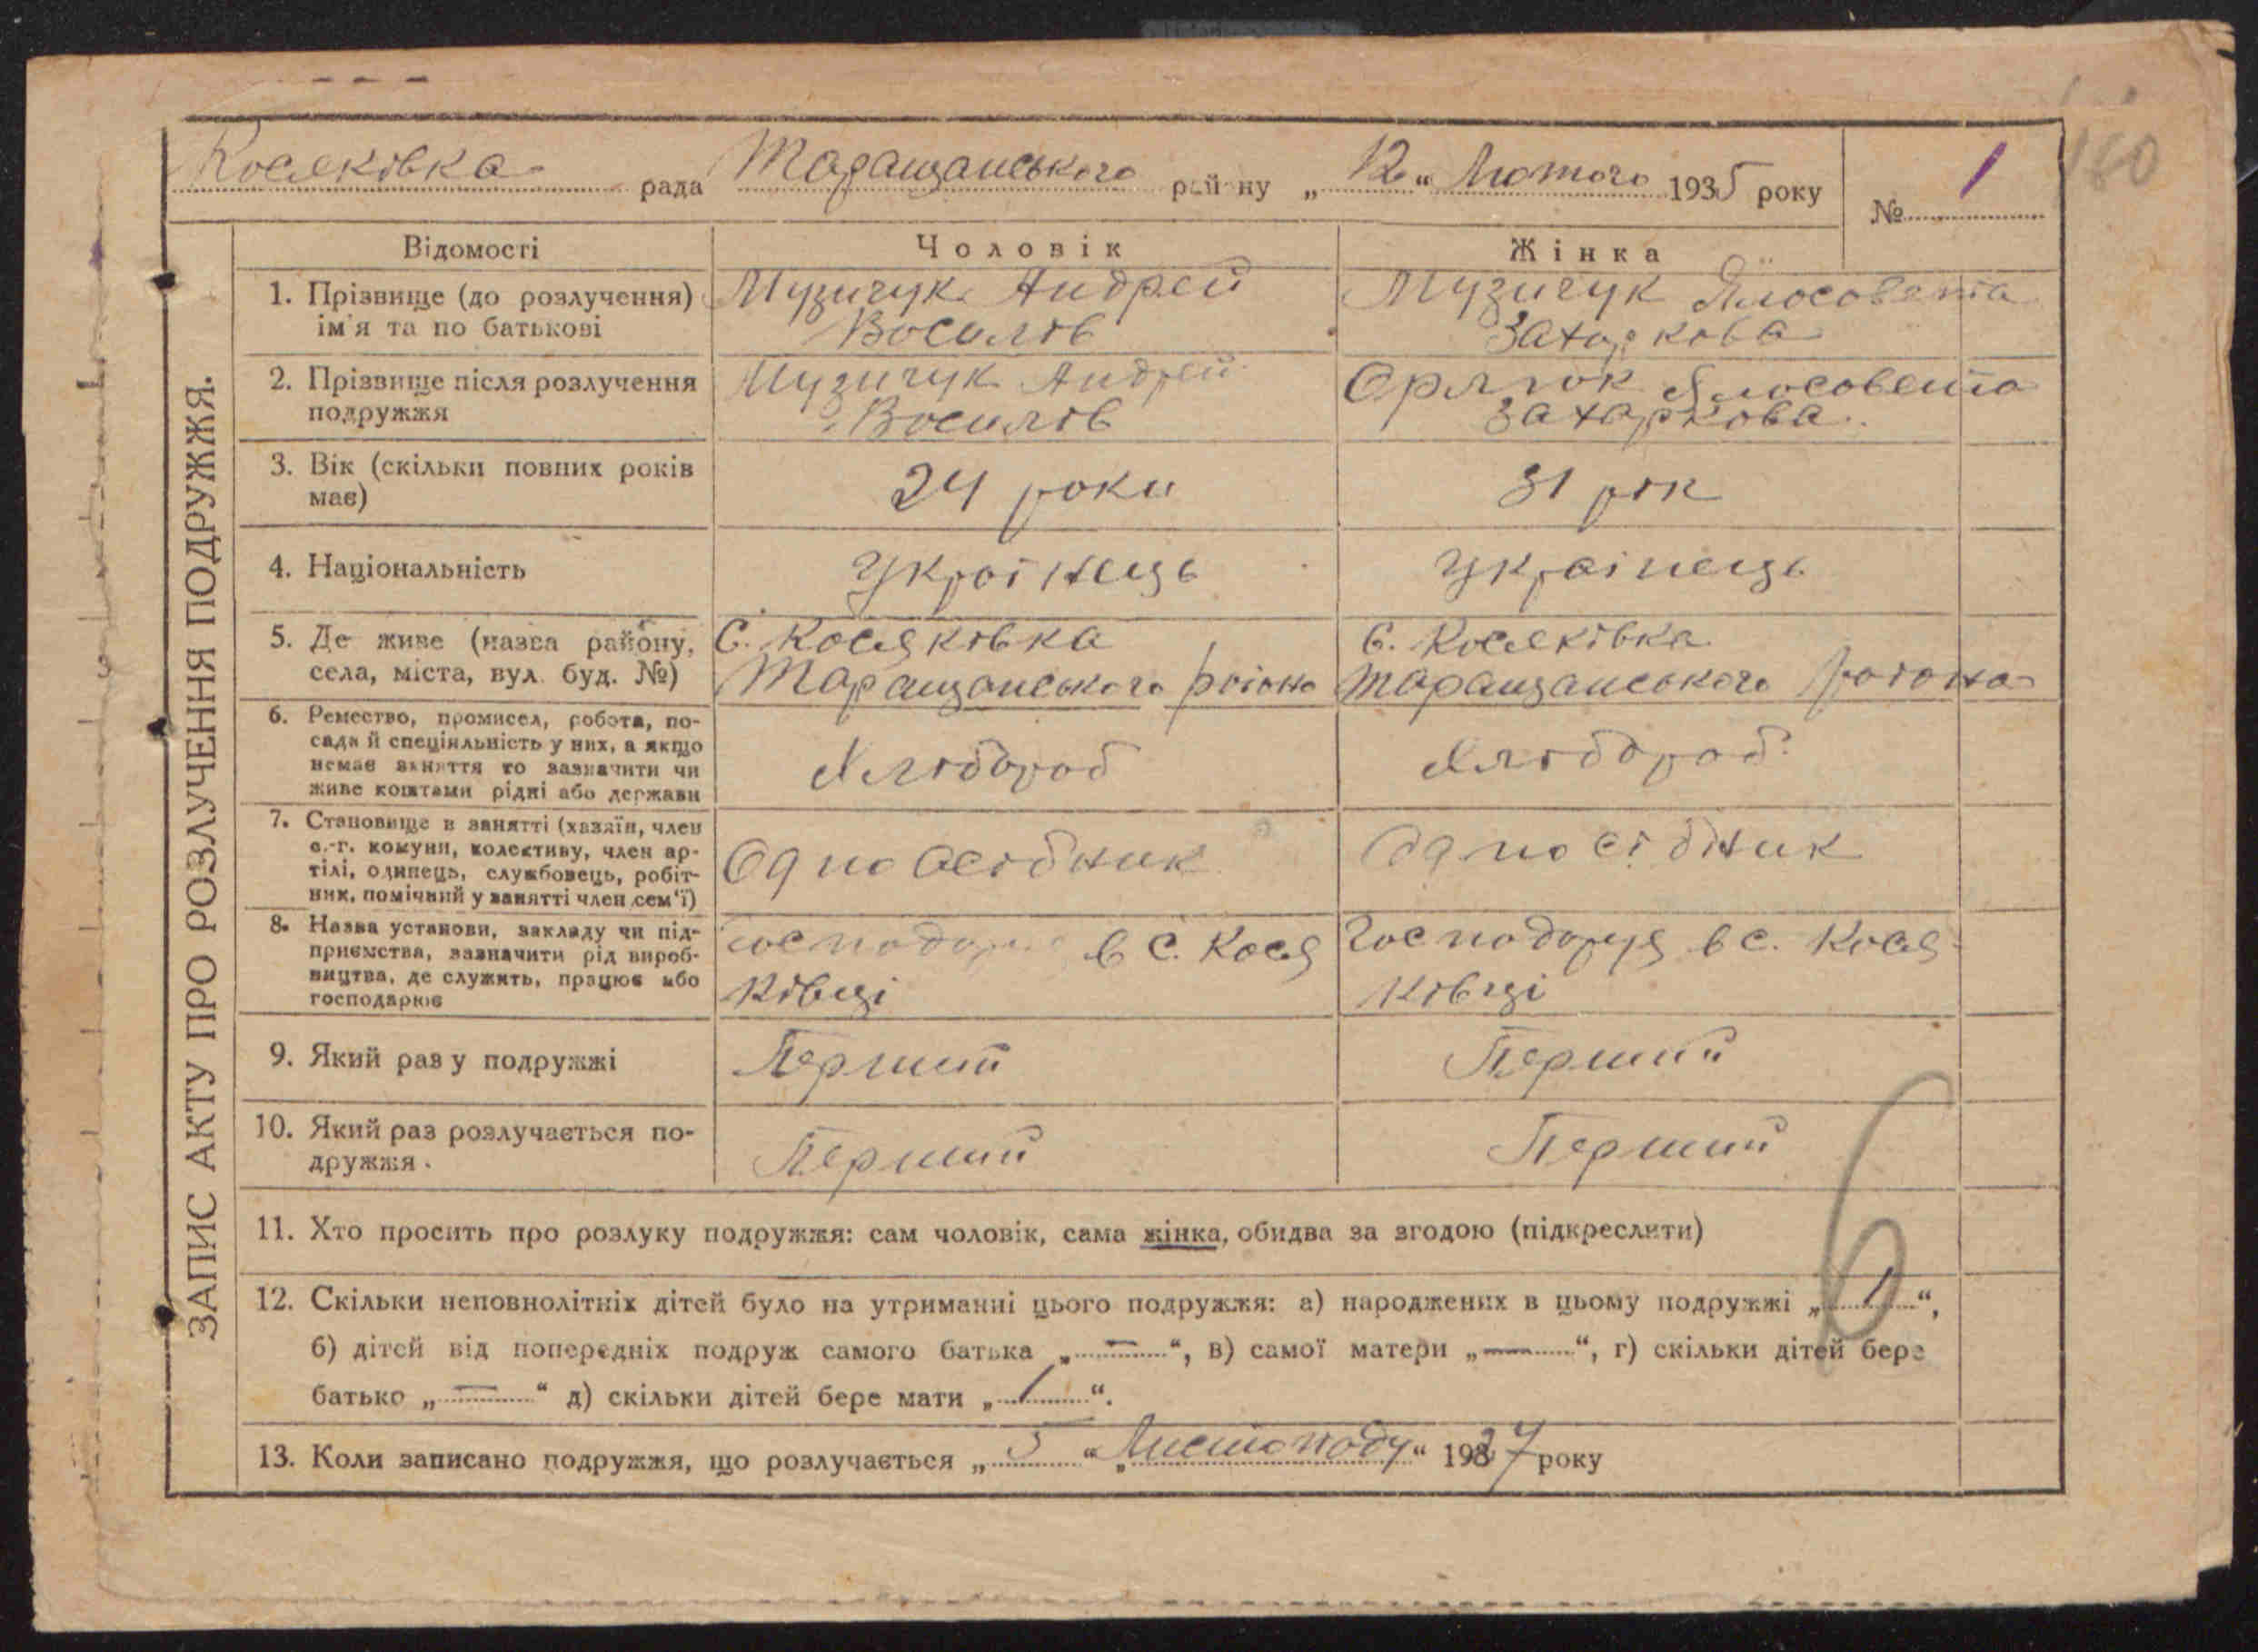 180
Косяківка рада Таращанського району „12“ Лютого 1935 року № 1
ЗАПИС АКТУ ПРО РОЗЛУЧЕННЯ ПОДРУЖЖЯ.
Відомості Чоловік Жінка
1. Прізвище (до розлучення) Музичук Андрей Музичук Ялосовета
ім'я та по батькові Восилів Захаркова
2. Прізвище після розлучення Музичук Андрей Орлюк Ялосовета
подружжя Восилів Захаркова
3. Вік (скільки повних років 24 роки 31 рік
має)
4. Національність Українець Українець
5. Де живе (назва району, С. Косяківка с. Косяківка
села, міста, вул. буд. №) Таращанського роіона Таращанського роіона
6. Ремество, промисел, робота, по-
сада й спеціяльність у них, а якщо Хлібороб Хлібороб
немає заняття то зазначити чи
живе коштами рідні або держави
7. Становище в занятті (хазяїн, член
с.-г. комуни, колективу, член ар- Одноосібник Односібник
тілі, одинець, службовець, робіт-
ник, помічний у занятті член сем'ї)
8. Назва установи, закладу чи під- в С. Кося Господоруя в с. Кося
приємства, зазначити рід вироб-
ництва, де служить, працює або ківці ківці
господарює
9. Який раз у подружжі Перший Перший
10. Який раз розлучається по- Перший Перший
дружжя.
11. Хто просить про розлуку подружжя: сам чоловік, сама жінка, обидва за згодою (підкреслити)
12. Скільки неповнолітніх дітей було на утриманні цього подружжя: а) народжених в цьому подружжі „1“,
б) дітей від попередніх подруж самого батька „—“, в) самої матери „—“, г) скільки дітей бере
батько „—“ д) скільки дітей бере мати „1“.
13. Коли записано подружжя, що розлучається „5“ „Листоподу“ 1927 року
6